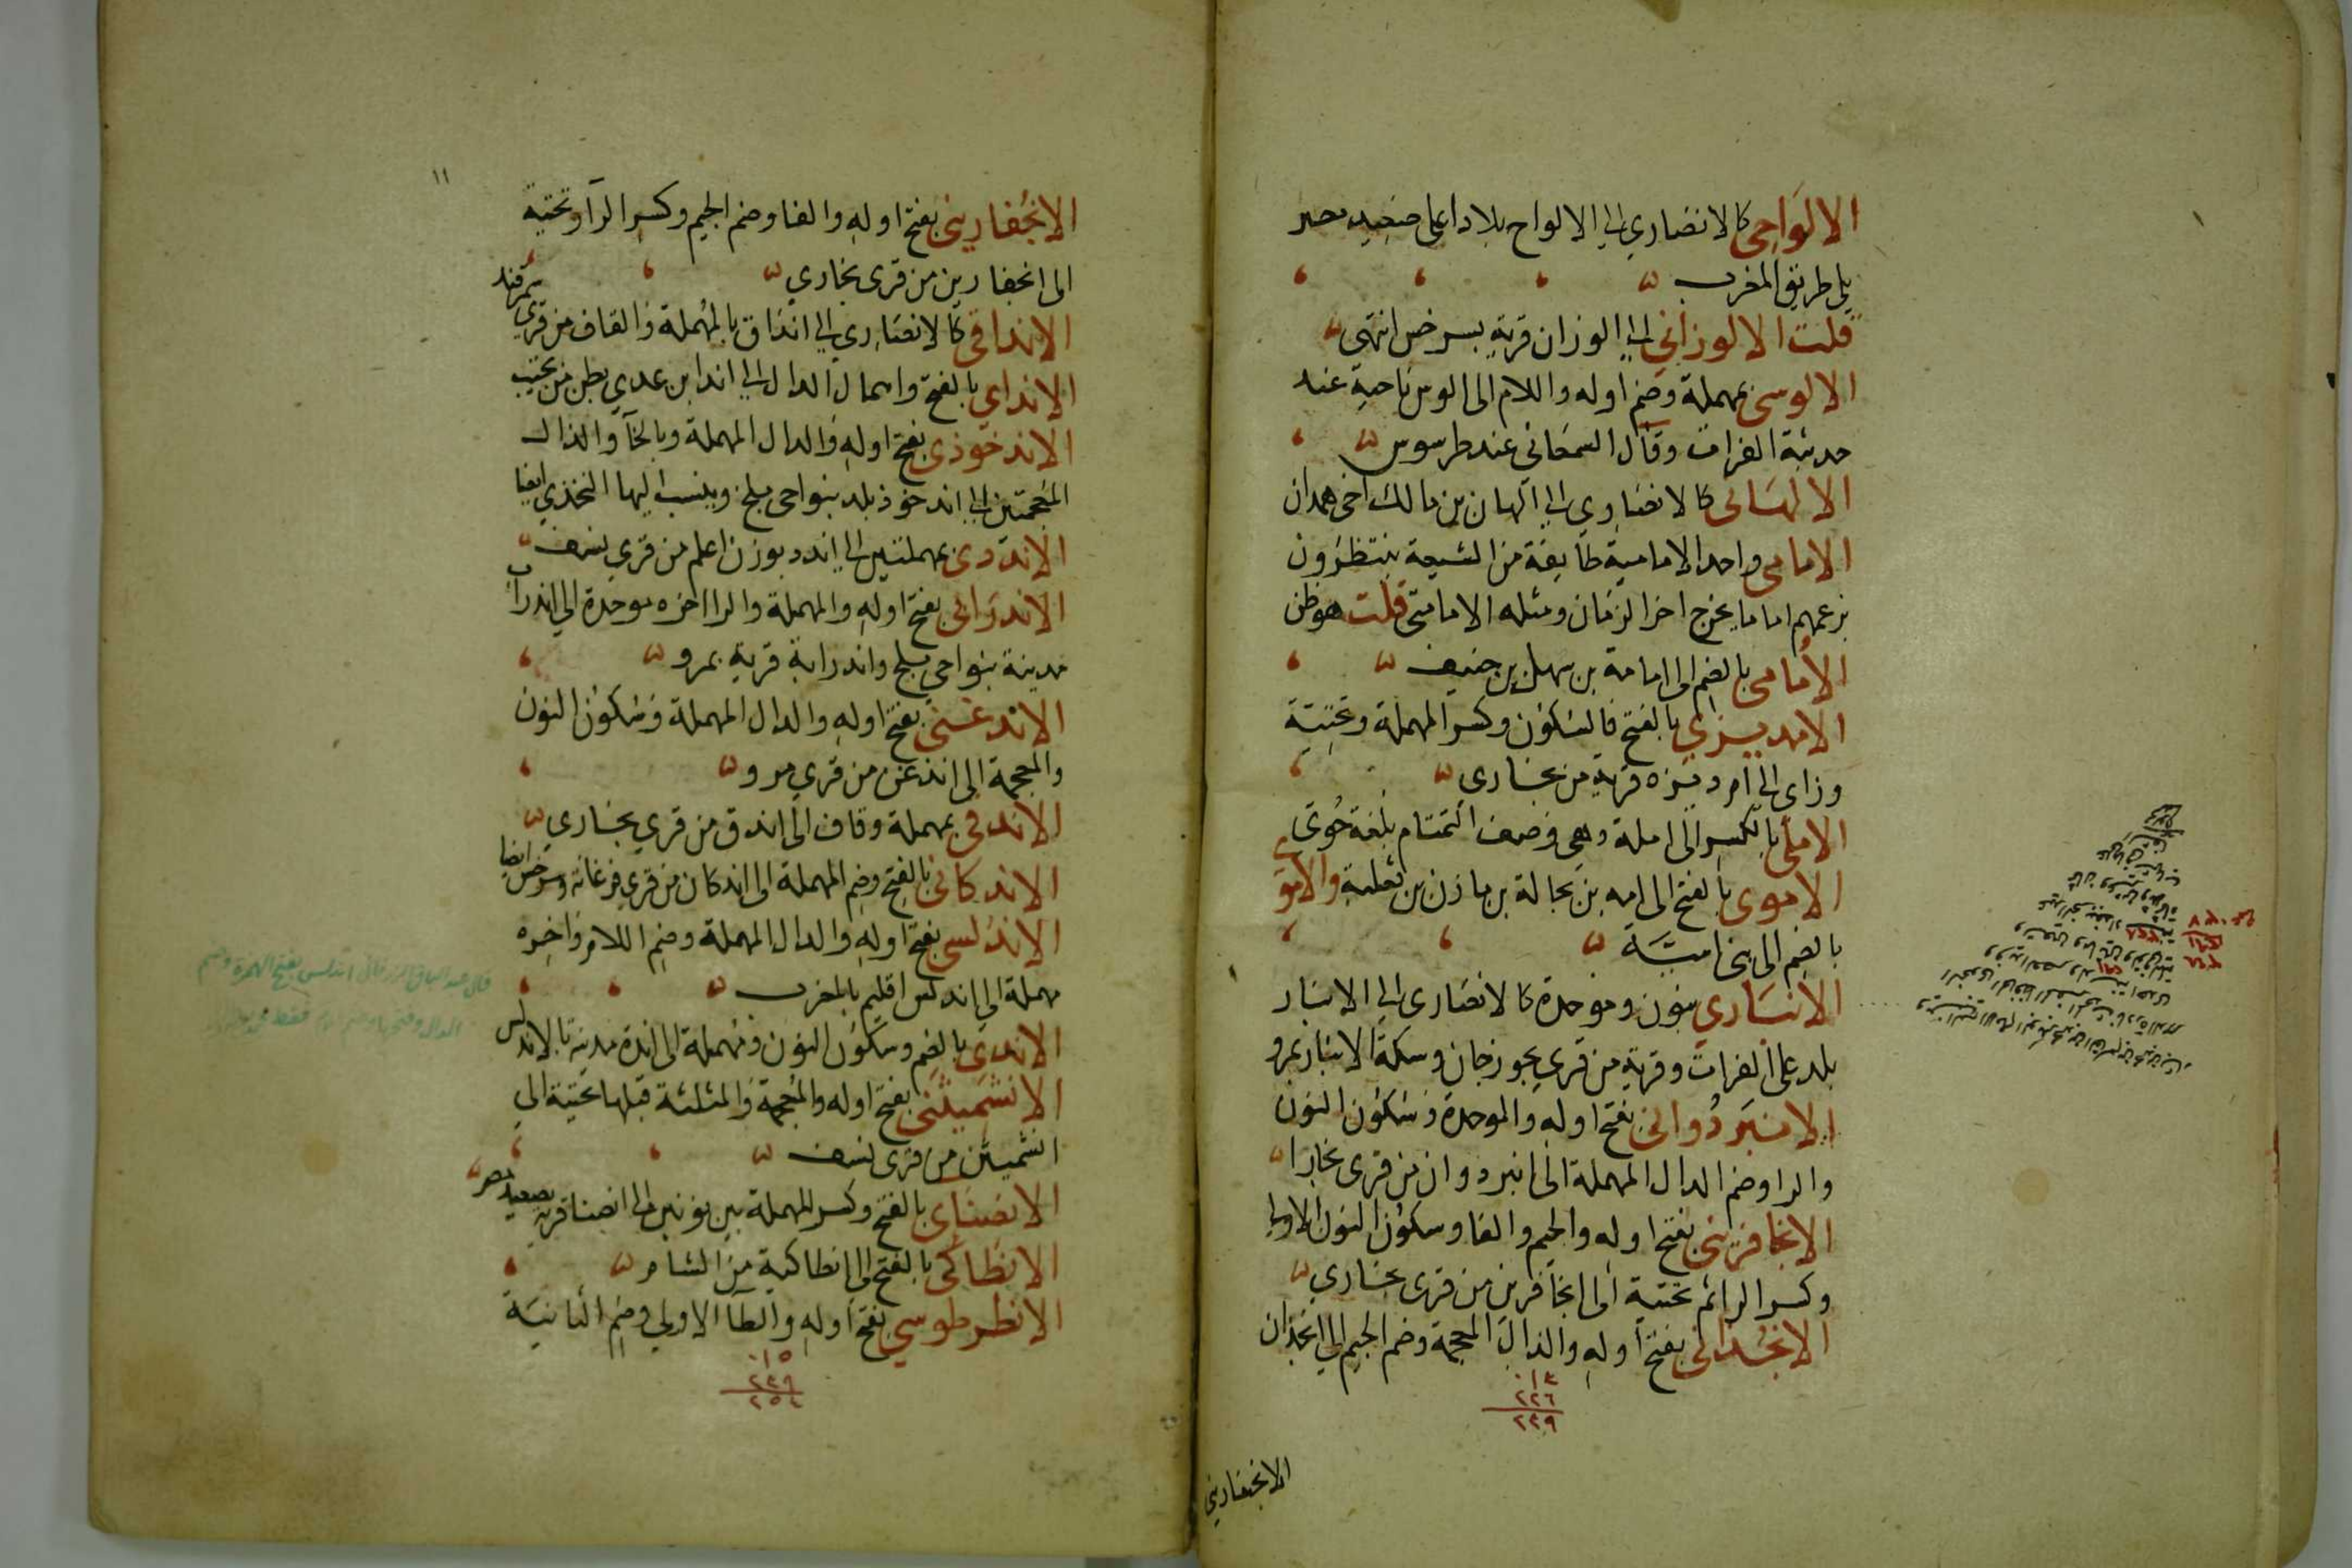 الالواحى كالانصارى الى الالواح بلاد اعلى صعيد مصر
يلى طريق المغرب
قلت الالوزانى الى الوزان قرية بسرخس انتهى
الالوسى بمهملة وضم اوله واللام الى الوس ناحية عند
حديثة الفرات وقال السمعانى عند طرسوس
الالهانى كالانصارى الى الهان بن مالك اخى همدان
الامامى واحد الامامية طايفة من الشيعة ينتظرون
بزعمهم اماما يخرج اخر الزمان ومثله الامامتى قلت هو ظن
الامامى بالضم الى امامة بن سهل بن حنيف
الامديزى بالفتح فالسكون وكسر المهملة وتحتية
وزاى الى امديزه قرية من بخارى
الاملى بالكسر الى املة وهى وصف التمتام بلغة خوى
الاموى بالفتح الى امه بن بجالة بن مازن بن ثعلبة والاموى
بالضم الى بنى امية
الانبارى بنون وموحدة كالانصارى الى الانبار
بلد على الفرات وقرية من قرى بجوزجان وسكة الانبار بمرو
الانبردوانى بفتح اوله والموحدة وسكون النون
والرا وضم الدال المهملة الى انبردوان من قرى بخارا
الانجافرينى بفتح اوله والجيم والفا وسكون النون الاولى
وكسر الرا ثم تحتية الى انجافرين من قرى بخارى
الانجذانى بفتح اوله والذال المعجمة وضم الجيم الى انجذان
٠١٣
٢٢٦
٢٣٩
الانجفارينى
١١
الانجفارينى بفتح اوله والفا وضم الجيم وكسر الرا وتحتية
الى انجفارين من قرى بخارى
الانداقى كالانصارى الى انداق بالمهملة والقاف من قرى سمرقند
الانداى بالفتح واهمال الدال الى اندا بن عدى بطن من تجيب
الاندخوذى بفتح اوله والدال المهملة وبالخا والذال
المعجمتين الى اندخوذ بلد بنواحى بلخ وينسب اليها النخذى ايضا
الانددى بمهملتين الى اندد بوزن اعلم من قرى نسف
الاندرابى بفتح اوله والمهملة والرا اخره موحدة الى اندراب
مدينة بنواحى بلخ واندرابة قرية بمرو
الاندغنى بفتح اوله والدال المهملة وسكون النون
والمعجمة الى اندغن من قرى مرو
الاندقى بمهملة وقاف الى اندق من قرى بخارى
الاندكانى بالفتح وضم المهملة الى اندكان من قرى فرغانة وسرخس ايضا
الاندلسى بفتح اوله والدال المهملة وضم اللام واخره
مهملة الى اندلس اقليم بالمغرب
قال عبد الباقى الزرقانى اندلس بفتح الهمزة وضم
الدال وفتحها وضم اللام فقط
الاندى بالضم وسكون النون ومهملة الى اندة مدينة بالاندلس
الانشميثنى بفتح اوله والمعجمة والمثلثة قبلها تحتية الى
انشميثن من قرى نسف
الانصناى بالفتح وكسر المهملة بين نونين الى انصنا قرية بصعيد مصر
الانطاكى بالفتح الى انطاكية من الشام
الانطرطوسى بفتح اوله والطا الاولى وضم الثانية
٠١٥
٢٣٩
٢٥٤